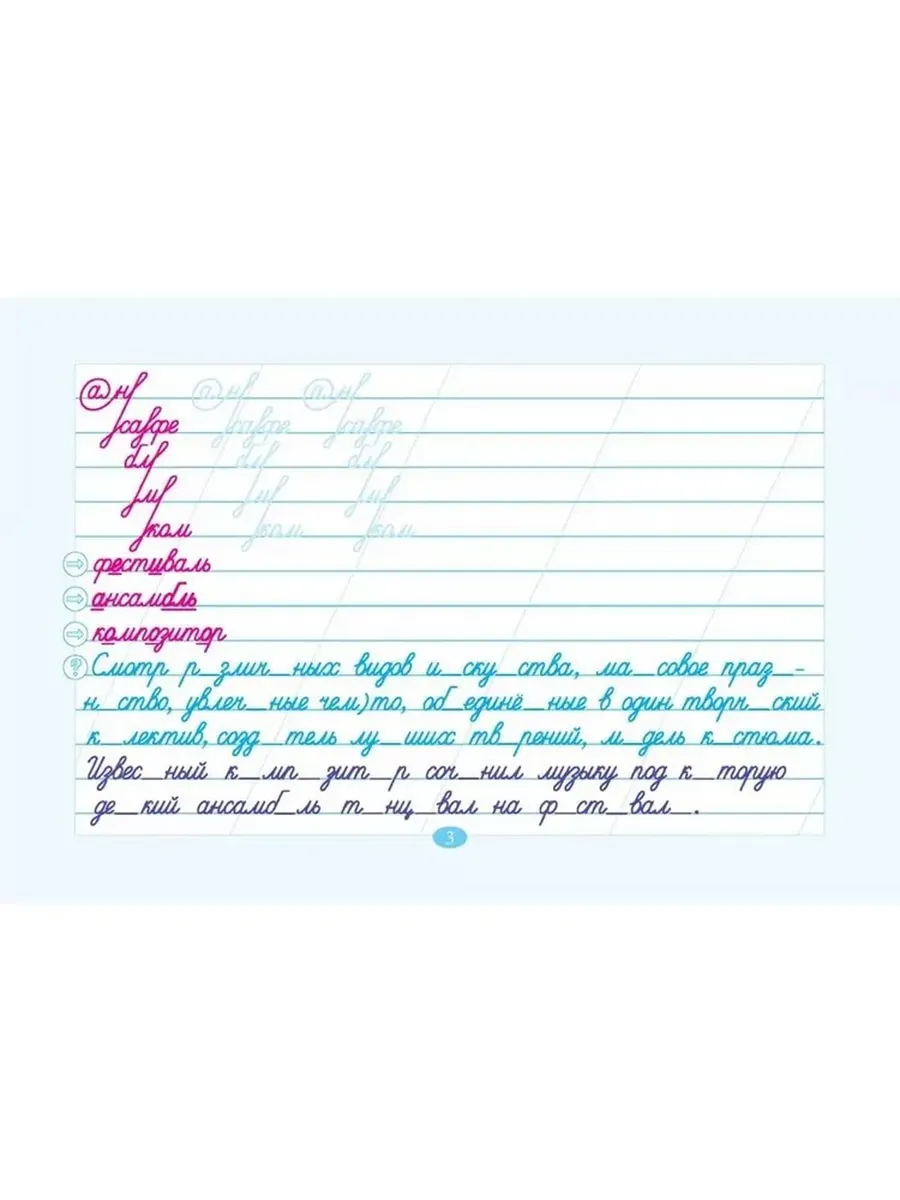 а н
са фе
бл
м
ком
фестиваль
ансамбль
композитор
? Смотр р_злич_ных видов и_ску_ства, ма_совое праз_-
н_ство, увлеч_ные чем)то, об_единё_ные в один творч_ский
к_лектив, созд_тель лу_ших тв_рений, м_дель к_стюма.
Извес_ный к_мп_зит_р соч_нил музыку под к_торую
де_кий ансамб_ль т_нц_вал на ф_ст_вал_.
3